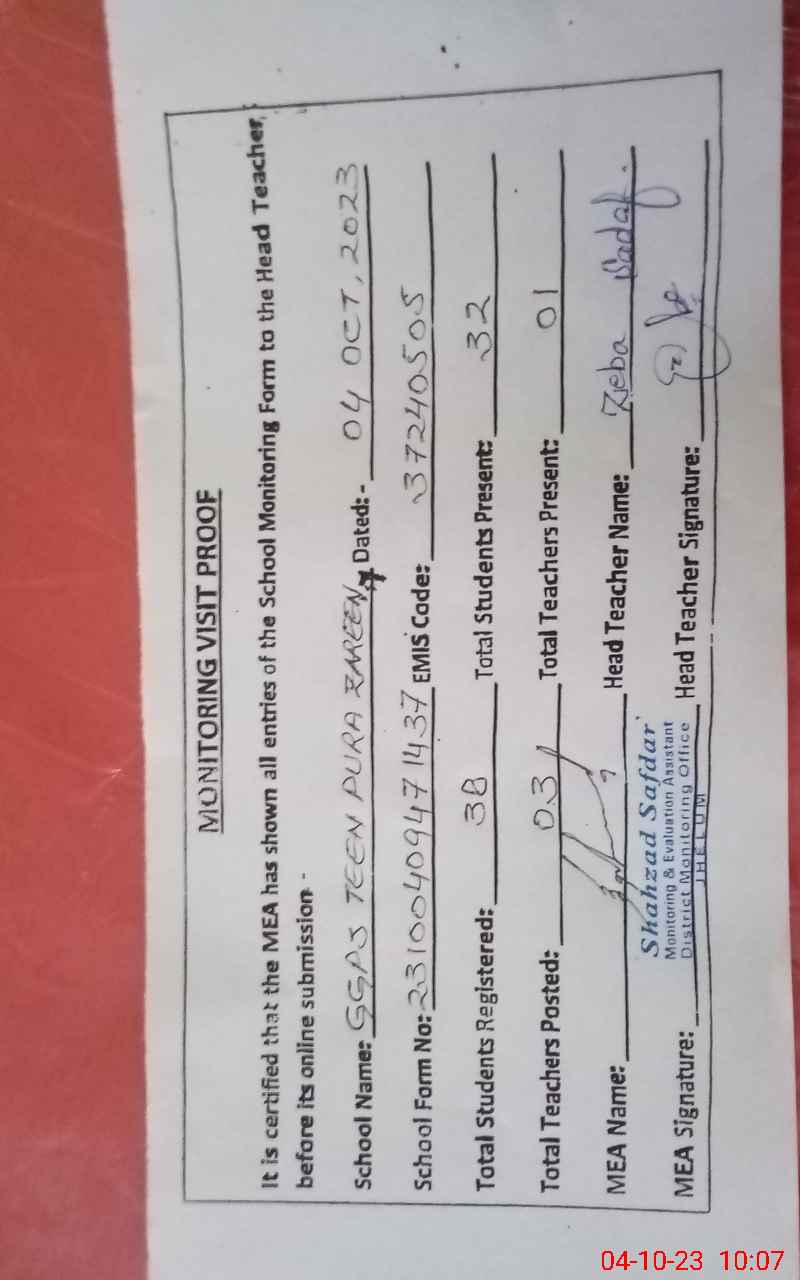 MONITORING VISIT PROOF
It is certified that the MEA has shown all entries of the School Monitoring Form to the Head Teacher,
before its online submission -
School Name: GGPS TEEN PURA ZAREEN Dated: - 04 OCT, 2023
School Form No: 23100409471437 EMIS Code: 37240505
Total Students Registered: 38 Total Students Present: 32
Total Teachers Posted: 03 Total Teachers Present: 01
MEA Name: Head Teacher Name: Zeba Sadaf.
Shahzad Safdar
Monitoring & Evaluation Assistant
District Monitoring Office
JHELUM
MEA Signature: Head Teacher Signature:
04-10-23 10:07